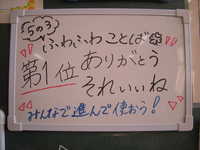 5の3
ふわふわことば
第1位 ありがとう
それいいね
みんなで進んで使おう!